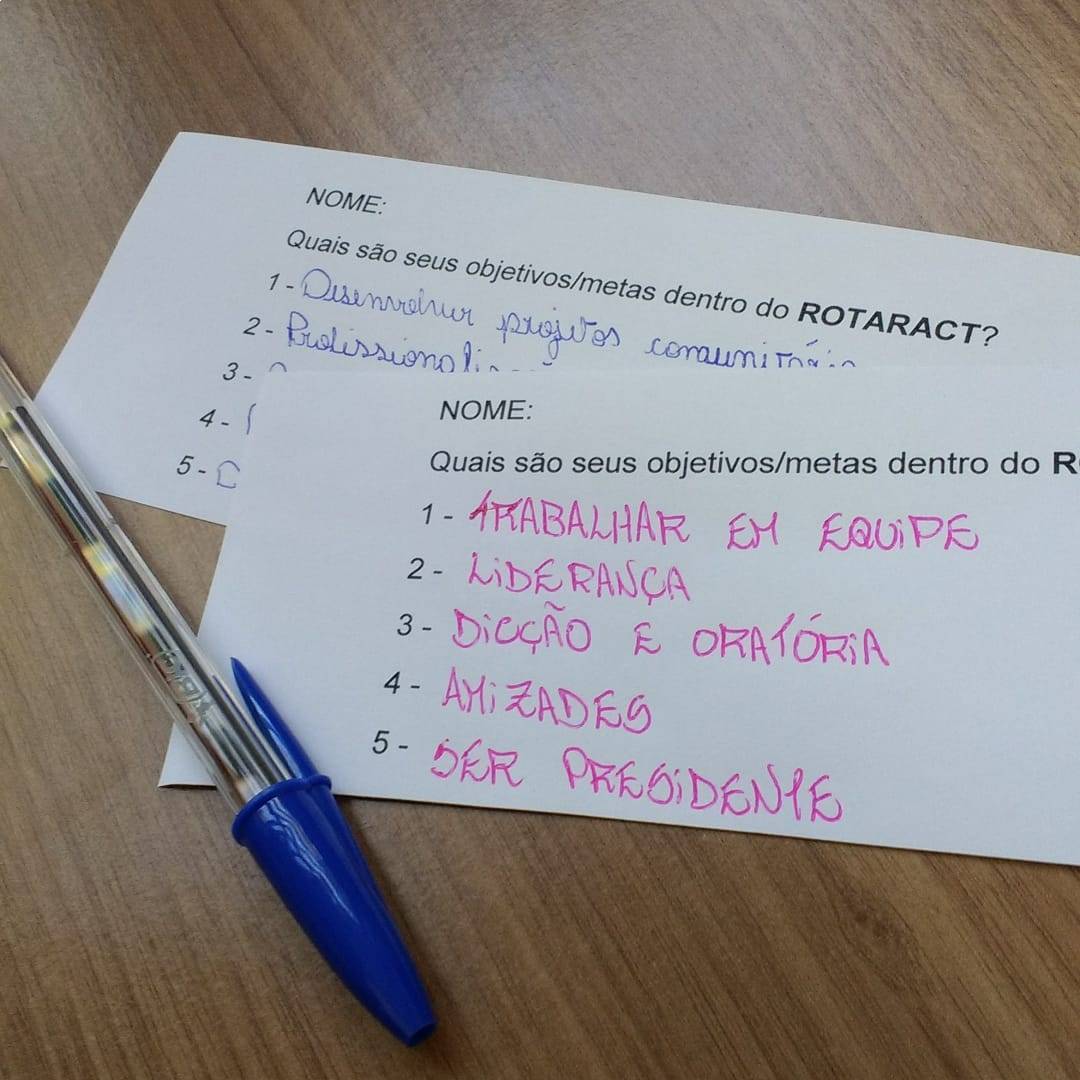 NOME:
Quais são seus objetivos/metas dentro do ROTARACT?
1 - Desenvolver projetos
2 -
3 -
4 -
5 -
NOME:
Quais são seus objetivos/metas dentro do
1 - TRABALHAR EM EQUIPE
2 - LIDERANÇA
3 - DICÇÃO E ORATÓRIA
4 - AMIZADES
5 - SER PRESIDENTE